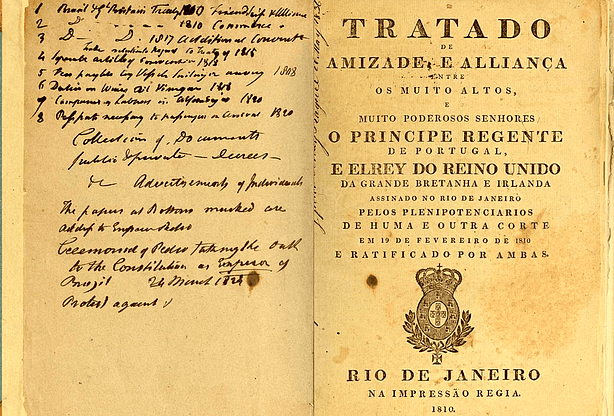 1 Brazil & Gt Britain Treaty 1810 Friendship & Alliance
2 D 1810 Commerce
3 D D. 1817 Additional Convent
Treaty of 1815
4 Separate article of Convention 1818
5 Fees payable by Vessels Sailing 1808
6 Duties on Wines at Vinegar 1818
7 Labours in Alfandega 1820
8 Passports necessary to passengers on arrival 1820
Collection of Documents
public & private — Decrees —
&c Advertisements of Individuals
The papers at Bottom marked are
Address to Emperor Pedro
Ceremonial of Pedro taking the Oath
to the Constitution as Emperor of
Brazil 24 March 1824
Protest against
TRATADO
DE
AMIZADE, E ALLIANÇA
ENTRE
OS MUITO ALTOS,
E
MUITO PODEROSOS SENHORES
O PRINCIPE REGENTE
DE PORTUGAL,
E ELREY DO REINO UNIDO
DA GRANDE BRETANHA E IRLANDA
ASSINADO NO RIO DE JANEIRO
PELOS PLENIPOTENCIARIOS
DE HUMA E OUTRA CORTE
EM 19 DE FEVEREIRO DE 1810
E RATIFICADO POR AMBAS.
RIO DE JANEIRO
NA IMPRESSÃO REGIA.
1810.